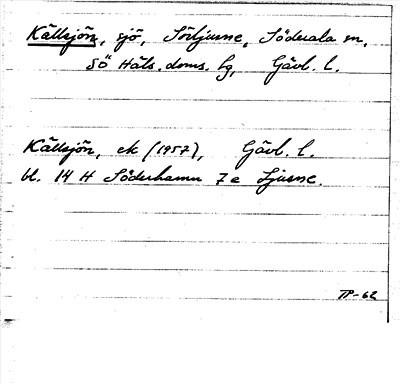 Källsjön, sjö, Sörljusne, Söderala sn,
Sö Häls. doms. hg, Gävl. l.
Källsjön, ek (1957), Gävl. l.
bl. 14 H Söderhamn 7 e Ljusne.
TP-62